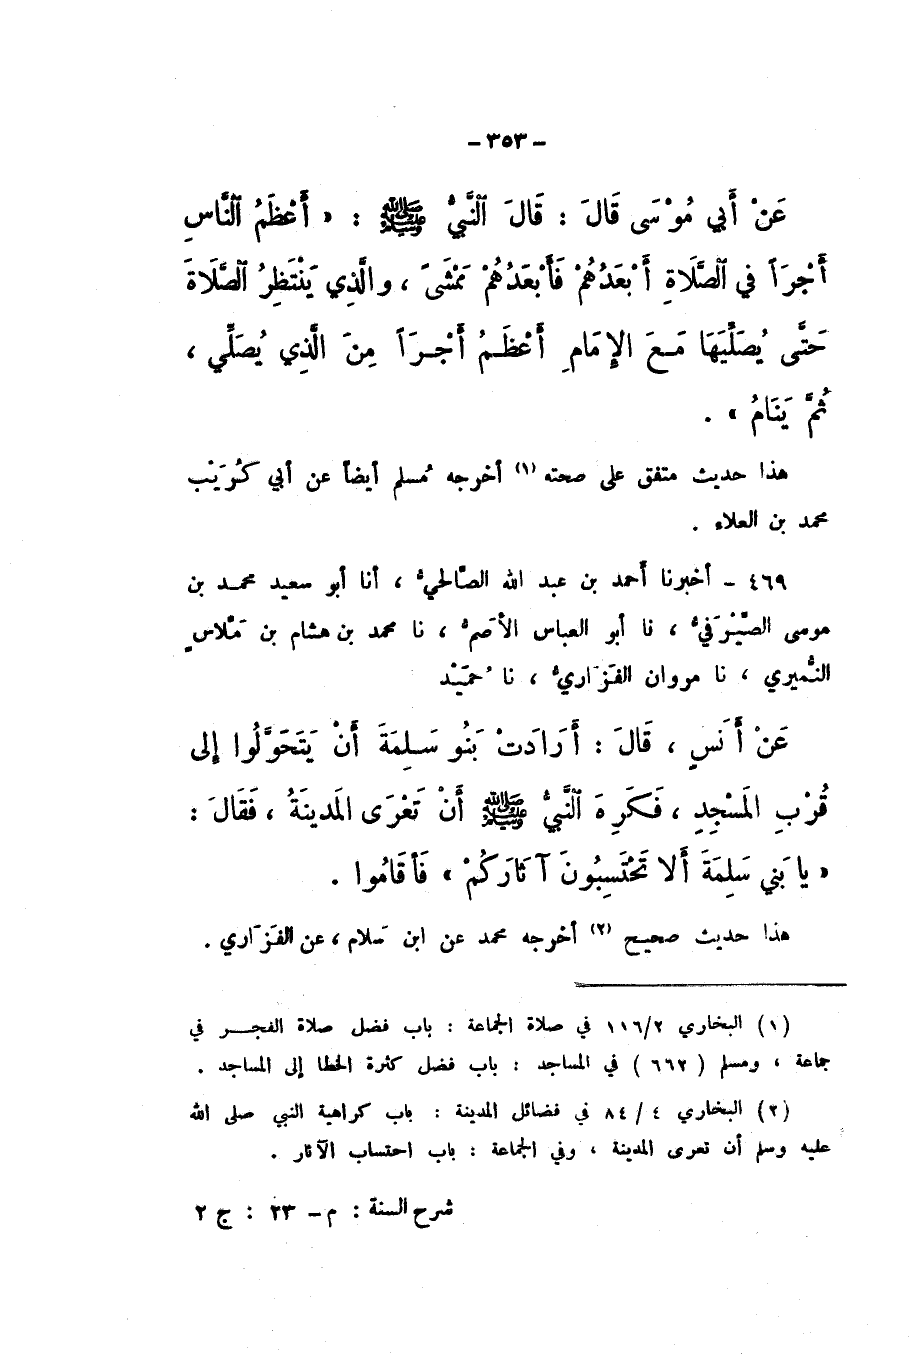 - ٣٥٣ -
عَنْ أَبي مُوْسَى قَالَ : قَالَ ٱلنَّبيُّ ﷺ : « أَعْظَمُ ٱلنَّاسِ
أَجْرَاً في ٱلصَّلَاةِ أَبْعَدُهُمْ فَأَبْعَدُهُمْ مَمْشَىً ، والَّذِي يَنْتَظِرُ ٱلصَّلَاةَ
حَتَّى يُصَلِّيَهَا مَعَ الإِمَامِ أَعْظَمُ أَجْرَاً مِنَ الَّذِي يُصَلِّي ،
ثُمَّ يَنَامُ » .
هذا حديث متفق على صحته (١) أخرجه مُسلم أيضاً عن أبي كُرَيْب
محمد بن العلاء .
٤٦٩ - أخبرنا أَحمد بن عبد الله الصّالحيُّ ، أنا أبو سعيد محمد بن
موسى الصَّيْرَفيُّ ، نا أبو العباس الأَصمُّ ، نا محمد بن هشام بن مَلّاسٍ
النُّميري ، نا مروان الفَزَاريُّ ، نا حُمَيْد
عَنْ أَنَسٍ ، قَالَ : أَرَادَتْ بَنُو سَلِمَةَ أَنْ يَتَحَوَّلُوا إلى
قُرْبِ المَسْجِدِ ، فَكَرِهَ ٱلنَّبيُّ ﷺ أَنْ تَعْرَى المَدينَةُ ، فَقَالَ :
« يا بَني سَلِمَةَ أَلا تَحْتَسِبُونَ آثَارَكُمْ » فَأَقَامُوا .
هذا حديث صحيح (٢) أخرجه محمد عن ابن سَلام ، عن الفَزَاري .
(١) البخاري ١١٦/٢ في صلاة الجماعة : باب فضل صلاة الفجر في
جماعة ، ومسلم ( ٦٦٢ ) في المساجد : باب فضل كثرة الخطا إلى المساجد .
(٢) البخاري ٤ / ٨٤ في فضائل المدينة : باب كراهية النبي صلى الله
عليه وسلم أن تعرى المدينة ، وفي الجماعة : باب احتساب الآثار .
شرح السنة : م - ٢٣ : ج ٢